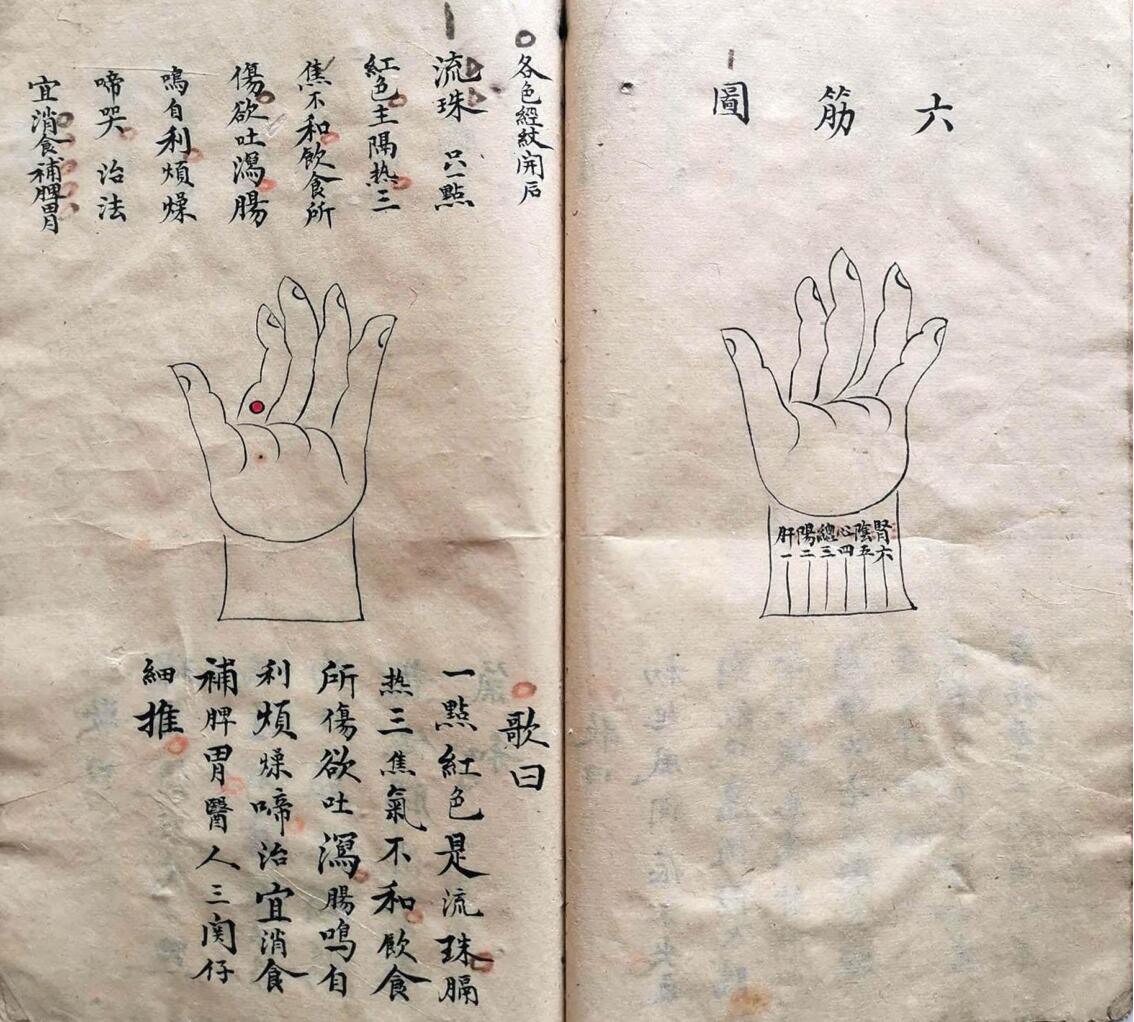 六筋圖
腎陰心總陽肝
六五四三二一
各色經紋開后
流珠 只一點
紅色主隔热三
焦不和飲食所
傷欲吐瀉腸
鳴自利煩燥
啼哭 治法
宜消食補脾胃
歌曰
一點紅色是流珠膈
热三焦氣不和飲食
所傷欲吐瀉腸鳴自
利煩燥啼治宜消食
補脾胃醫人三関仔
細推